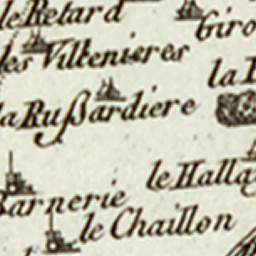 le Retard
Giro
les Viltenieres
la
la Rußardiere
le Halla
Barnerie
le Chaillon